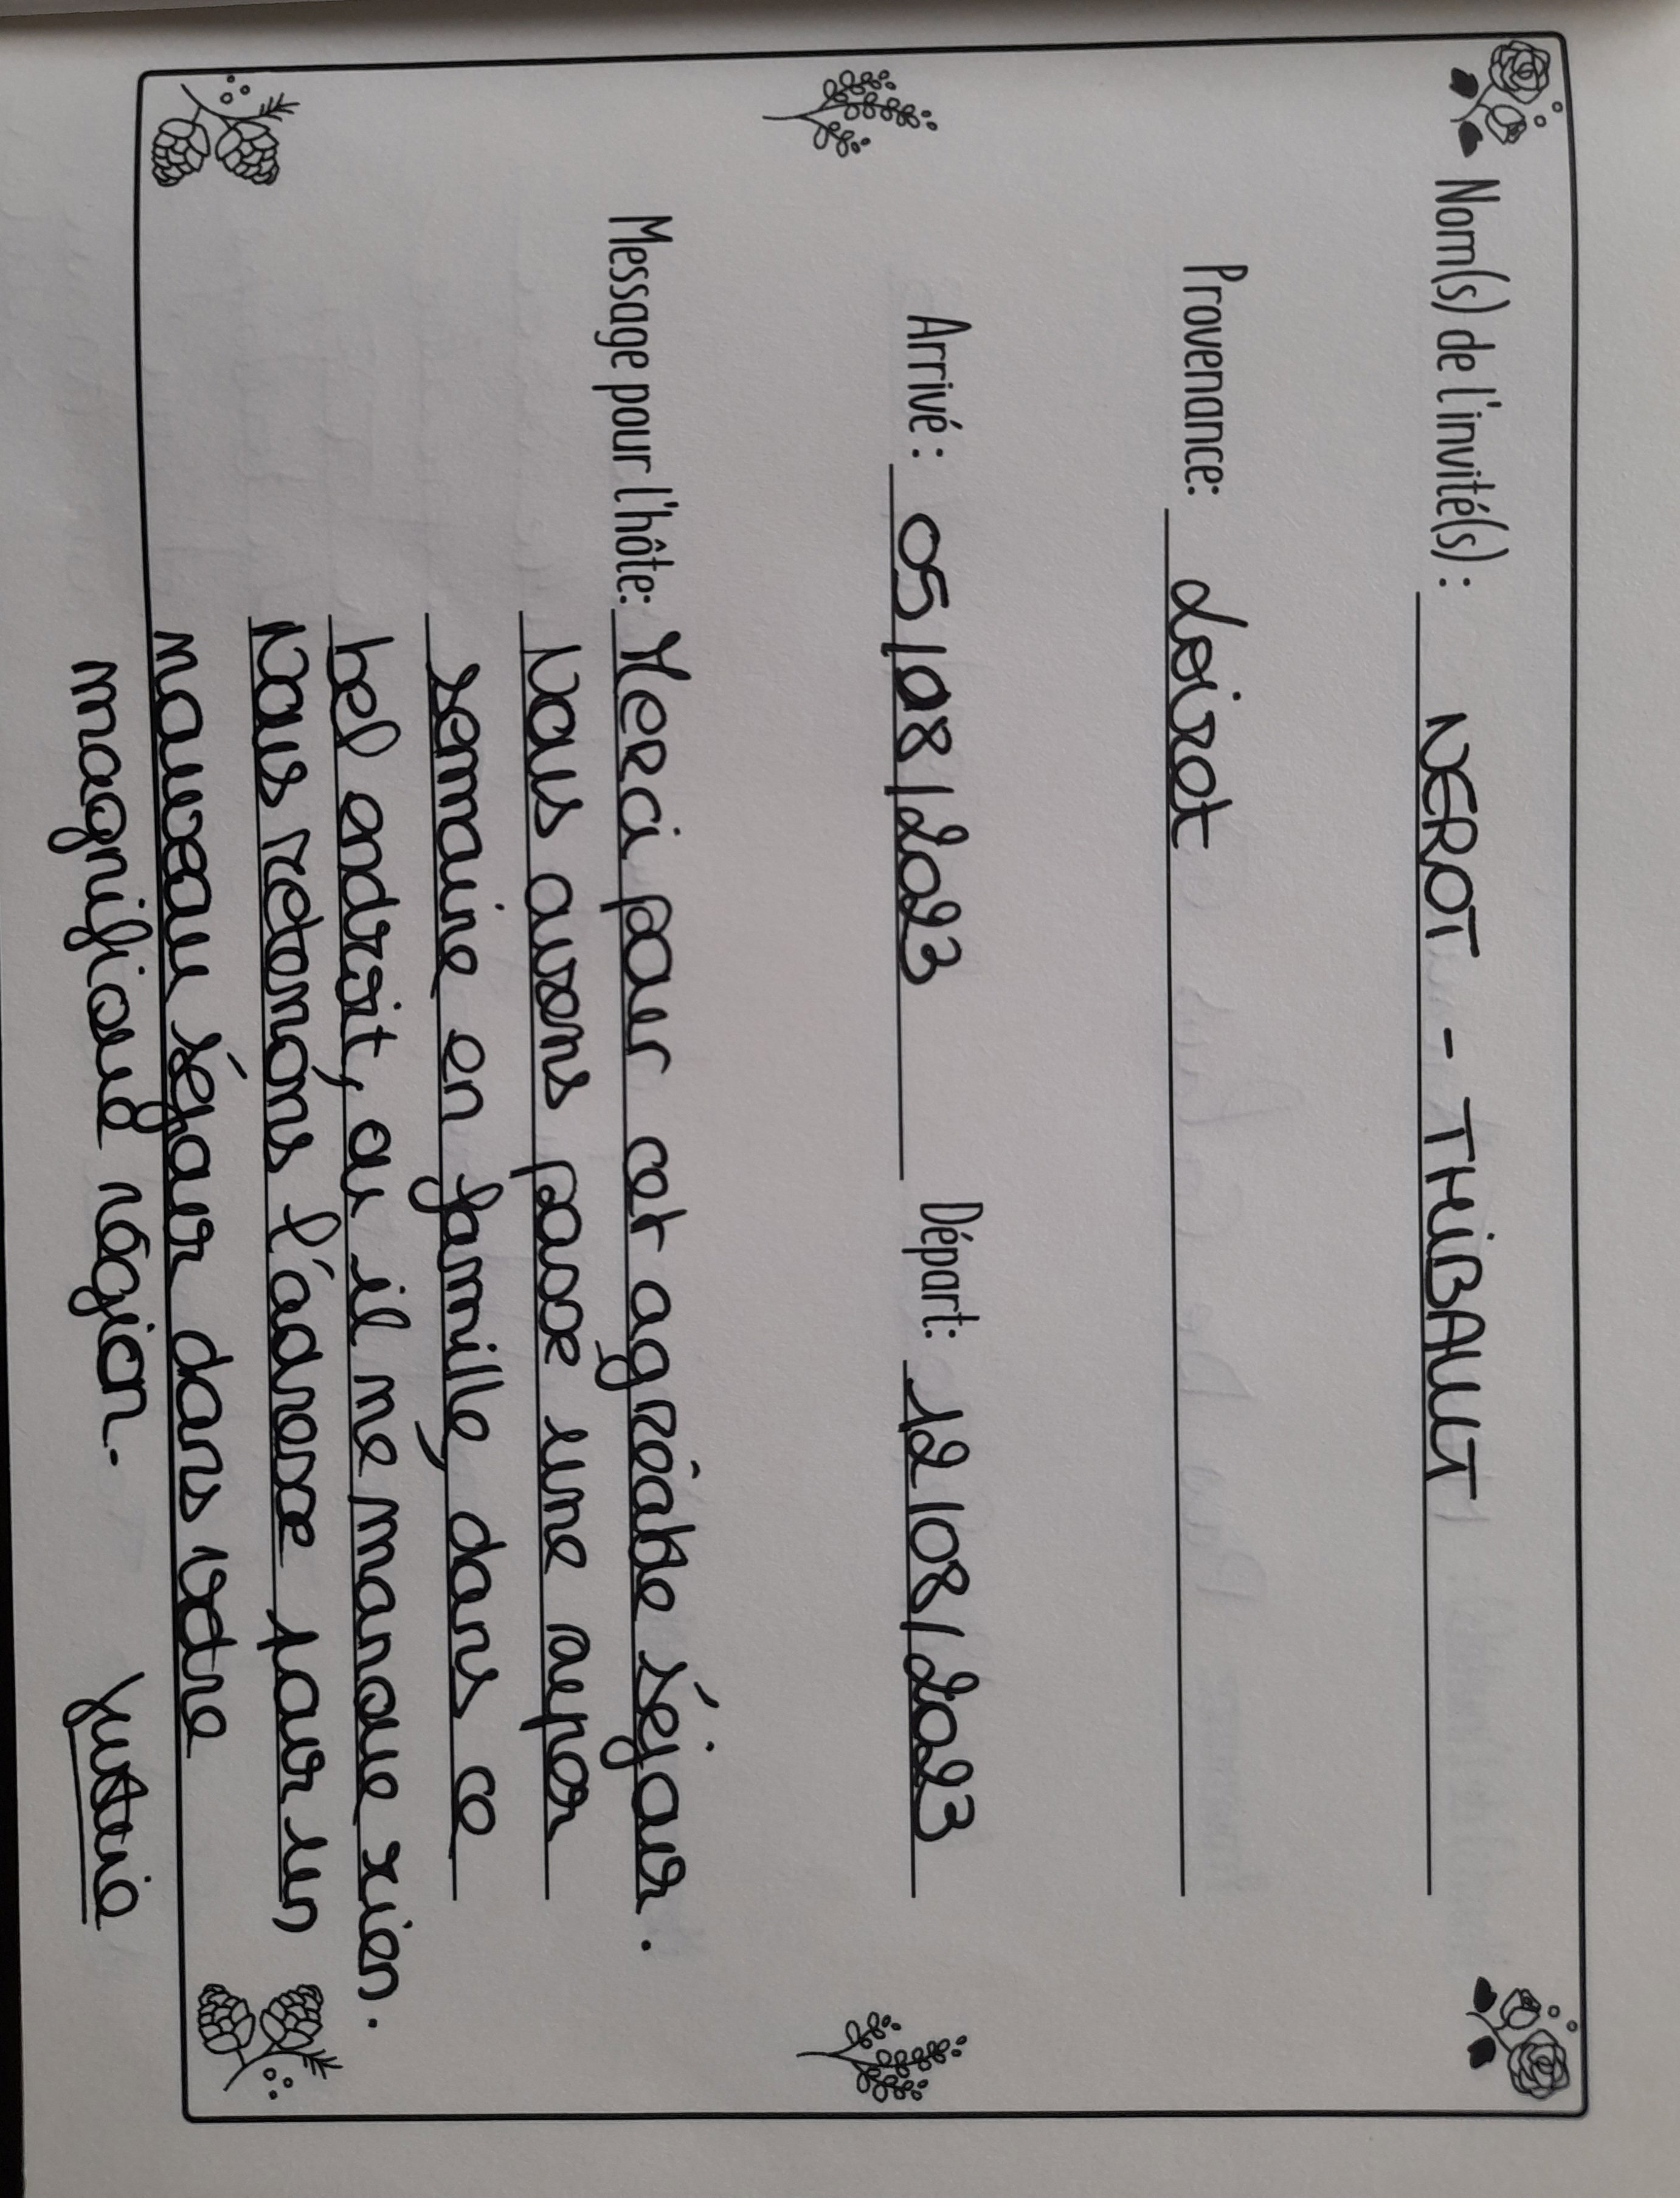 Nom(s) de l'invité(s) : NEROT - THIBAUT
Provenance: Loiret
Arrivé : 05/08/2023 Départ: 12/08/2023
Message pour l'hôte: Merci pour cet agréable séjour.
Nous avons passe une super
semaine en famille, dans ce
bel endroit, ou il me manque rien.
Nous retenons l'adresse pour un
nouveau séjour dans votre
magnifique région. Justine